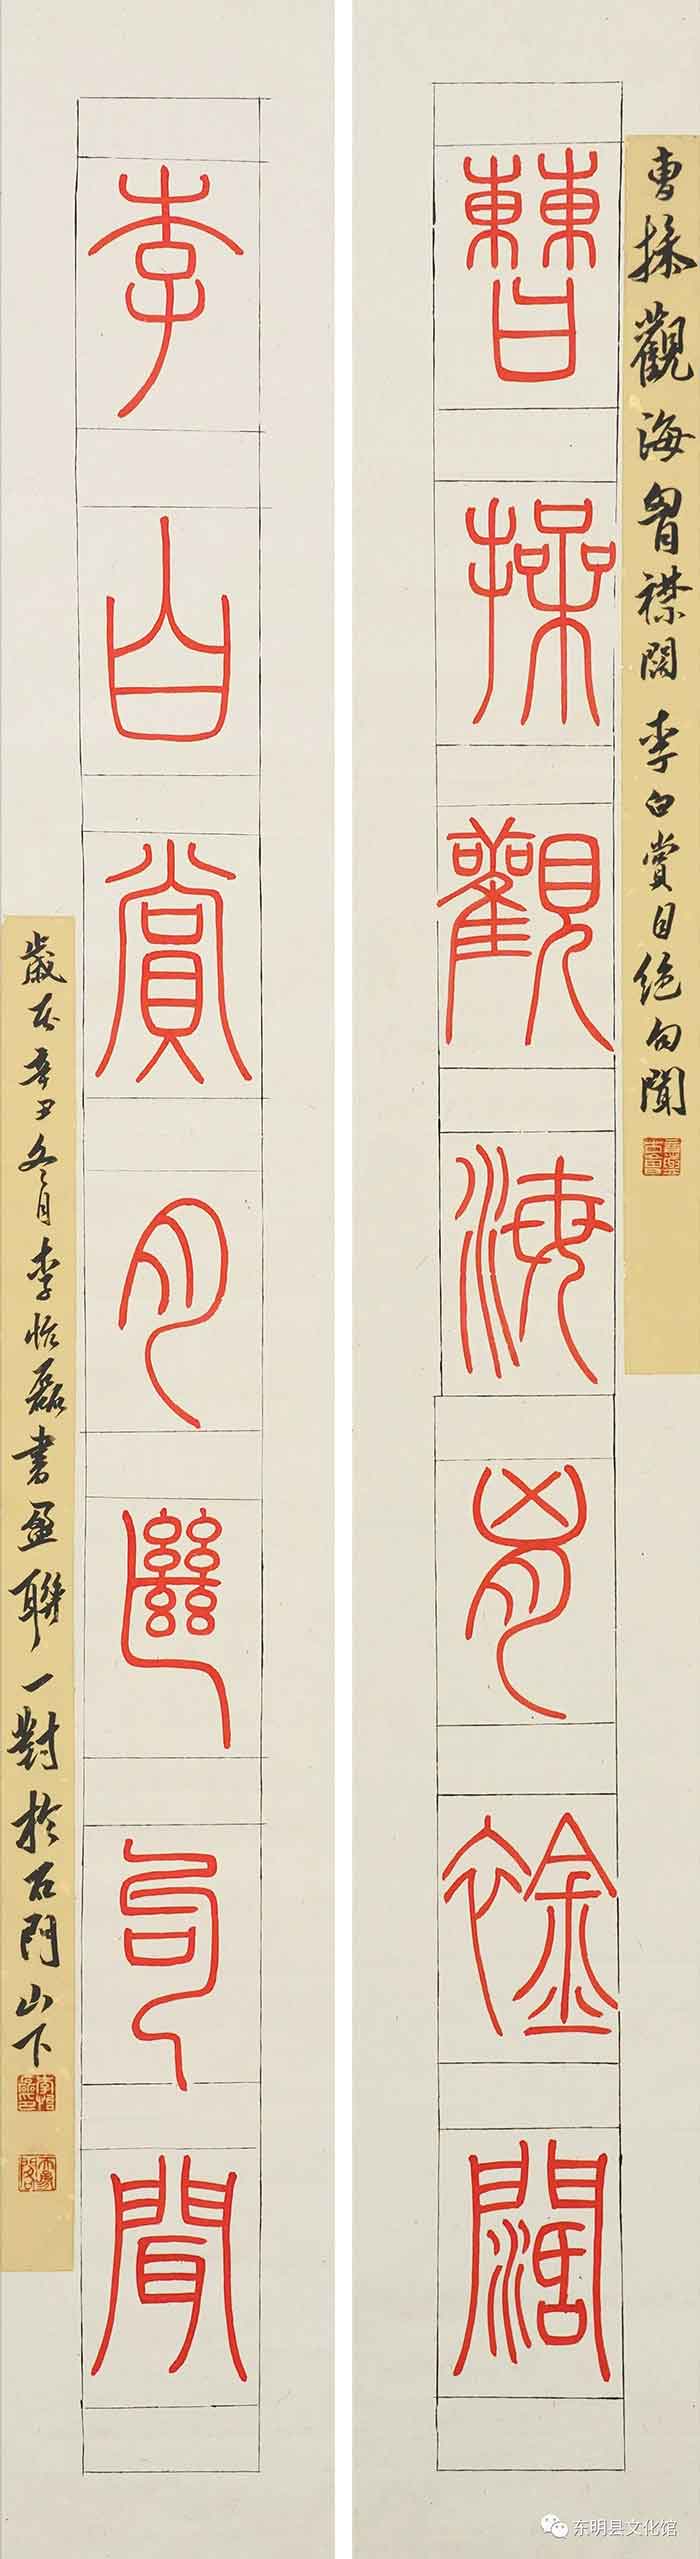 曹操觀海胷襟闊李白賞月絕句聞
曹操觀海胷襟闊
李白賞月絕句聞
歲在辛丑冬月李怡磊書盈聯一對於石門山下
东明县文化馆